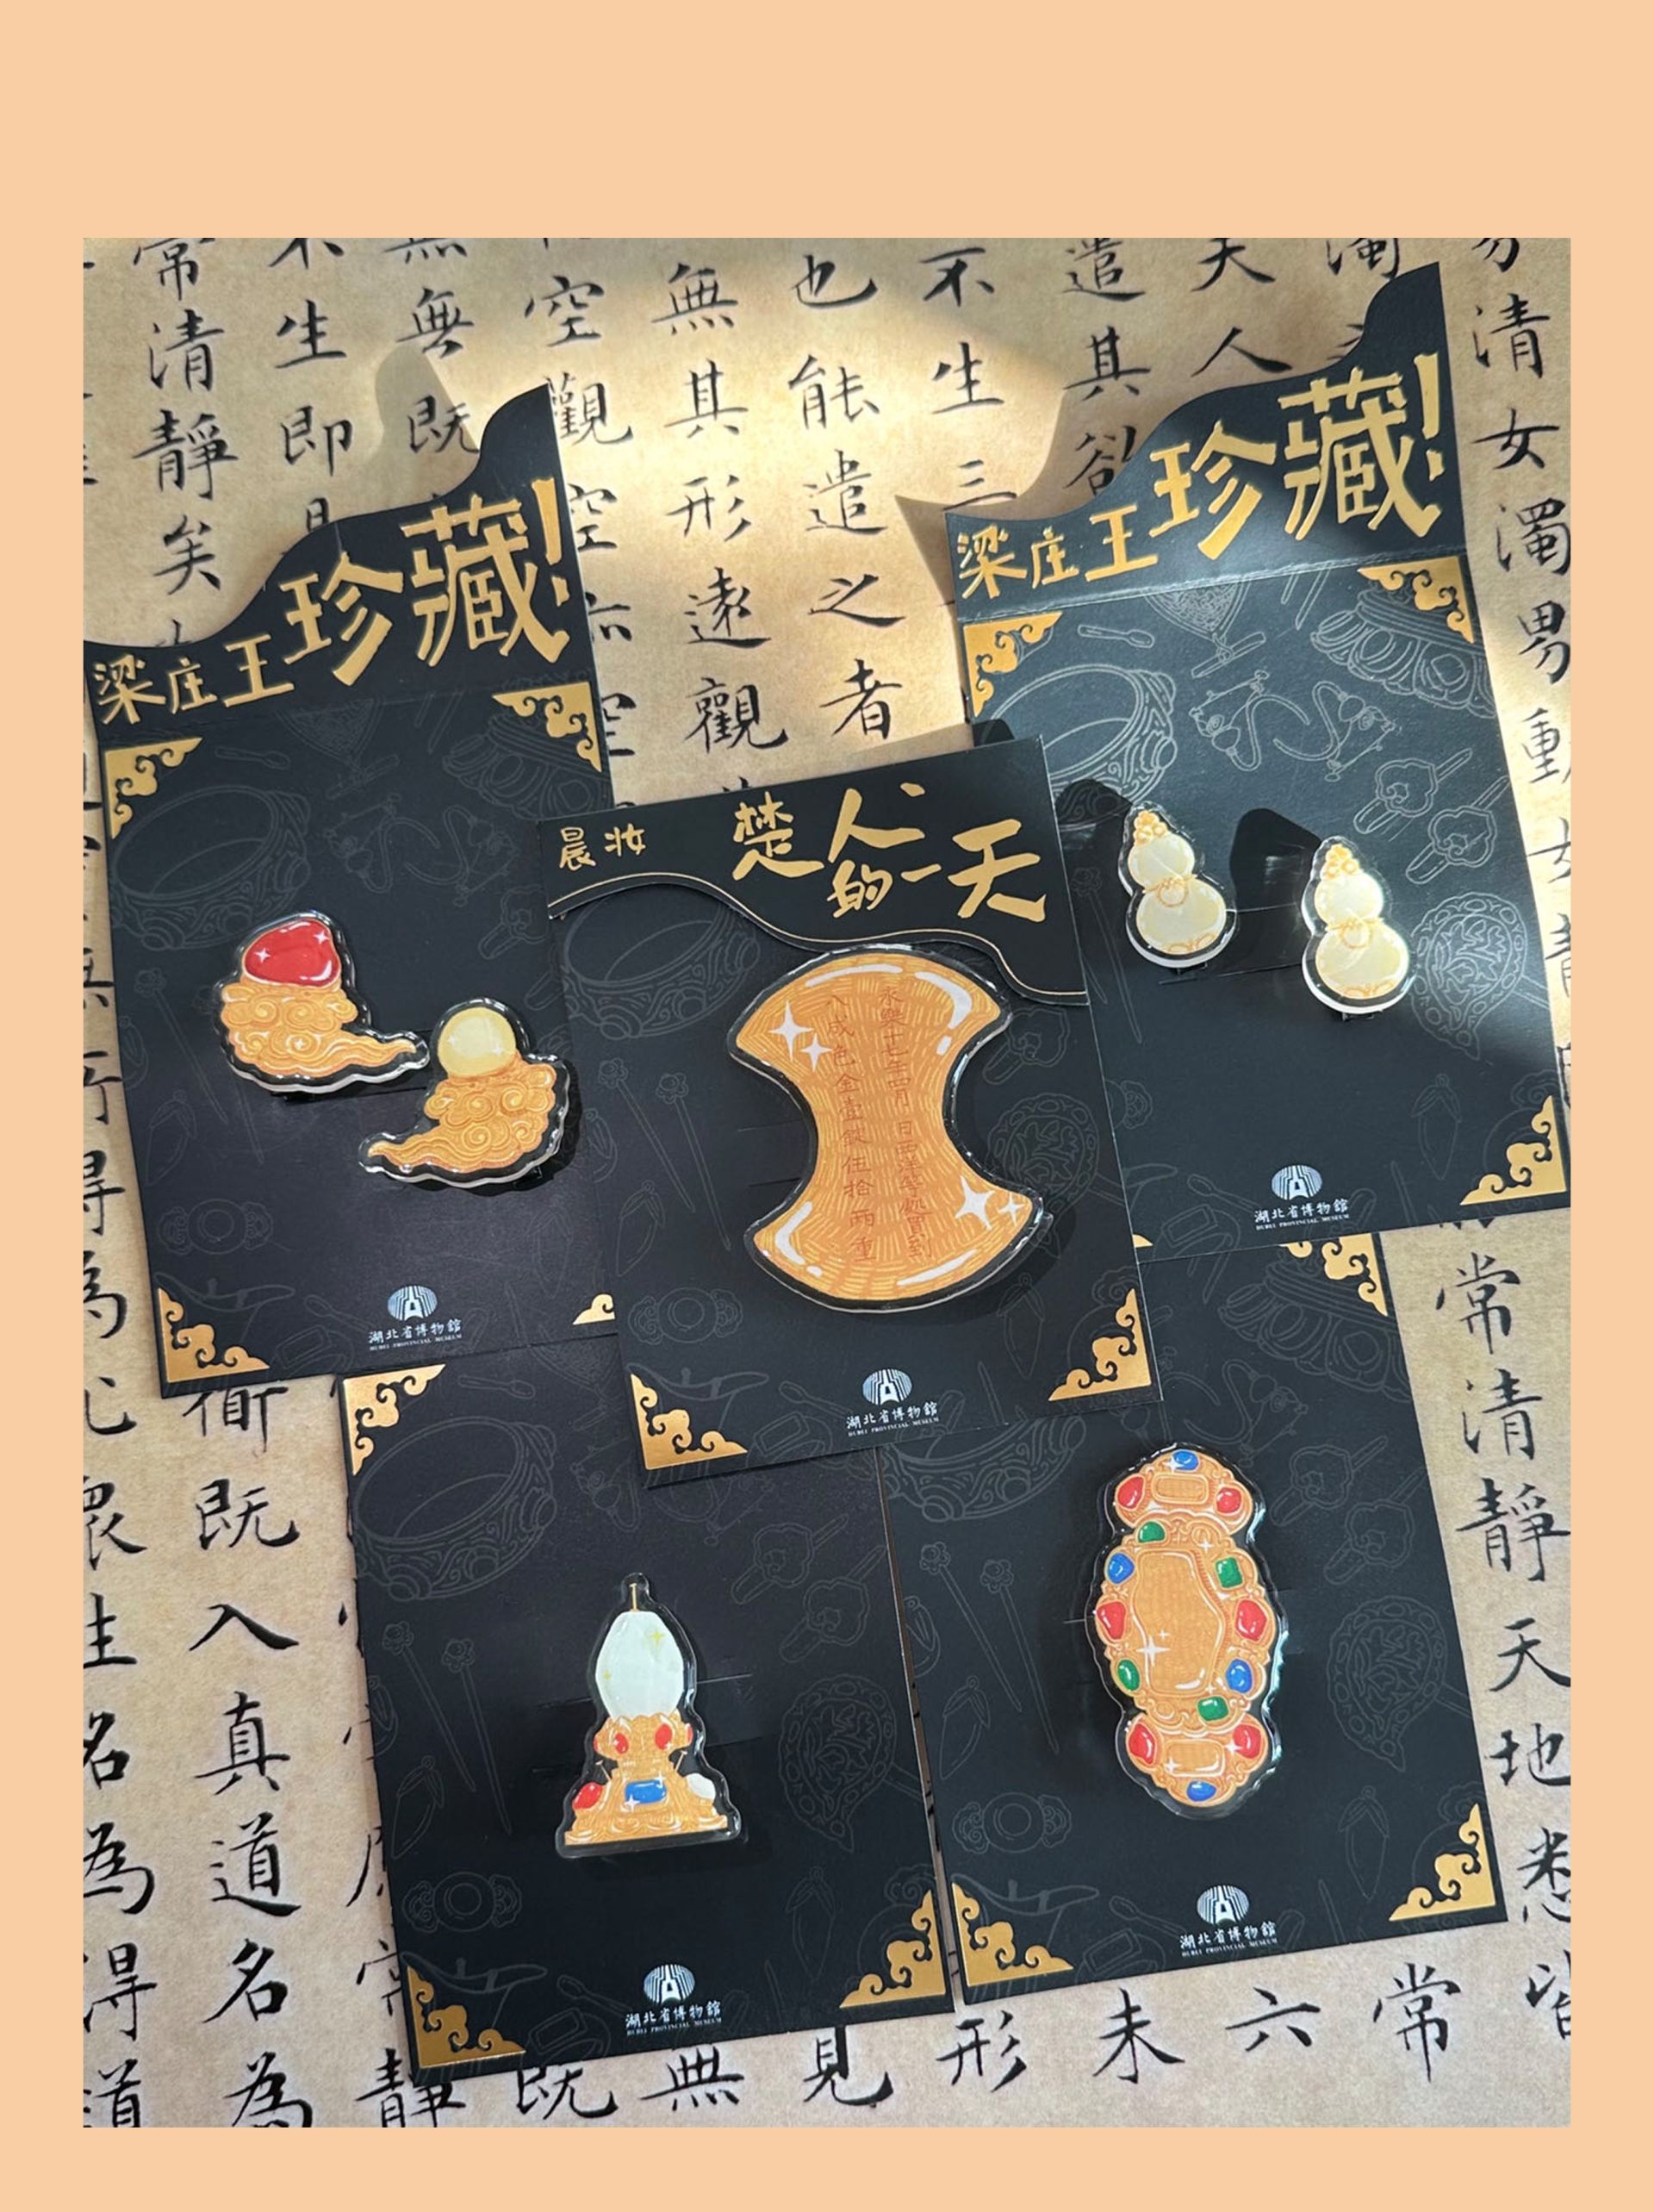 梁庄王珍藏!
湖北省博物館
HUBEI PROVINCIAL MUSEUM
晨妆
楚人的一天
永樂十七年四月 日西洋等処買到
八成色金壹錠伍拾兩重
湖北省博物館
HUBEI PROVINCIAL MUSEUM
梁庄王珍藏!
湖北省博物館
HUBEI PROVINCIAL MUSEUM
湖北省博物館
HUBEI PROVINCIAL MUSEUM
湖北省博物館
HUBEI PROVINCIAL MUSEUM
清女濁男動
天人
遣其欲
不生三
也能遣之者
無其形遠觀
空觀空
無無既
不生即
常清靜矣
常清靜天地悉皆
常
六
未
形
見
無
既
靜
既入真道名為
得為
生名為得道